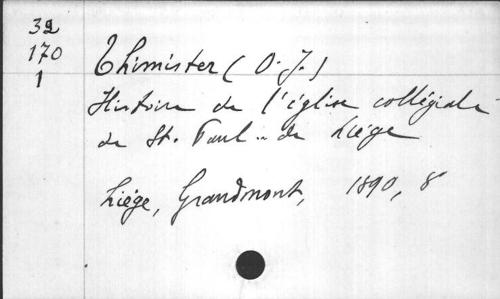 32
170
1
Thimister ( O. J. )
Histoire de l'église collégiale
de St. Paul .. de Liége
Liége, Grandmont, 1890, 8°